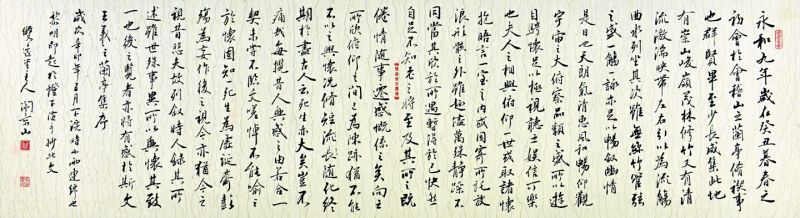 永和九年歲在癸丑暮春之
初會於會稽山之蘭亭脩禊事
也群賢畢至少長咸集此地
有崇山峻嶺茂林修竹又有清
流激湍映帶左右引以為流觴
曲水列坐其次雖無絲竹管弦
之盛一觴一詠亦足以暢敘幽情
是日也天朗氣清惠風和暢仰觀
宇宙之大俯察品類之盛所以遊
目騁懷足以極視聽之娛信可樂
也夫人之相與俯仰一世或取諸懷
抱晤言一室之內或因寄所託放
浪形骸之外雖趣舍萬殊靜躁不
同當其欣於所遇暫得於己快然
自足不知老之將至及其所之既
倦情隨事遷感慨係之矣向之
所欣俯仰之間已為陳跡猶不能
不以之興懷況修短隨化終
期於盡古人云死生亦大矣豈不
痛哉每攬昔人興感之由若合一
契未嘗不臨文嗟悼不能喻之
於懷固知一死生為虛誕齊彭
殤為妄作後之視今亦猶今之
視昔悲夫故列敘時人錄其所
述雖世殊事異所以興懷其致
一也後之覽者亦將有感於斯文
王羲之蘭亭集序
歲次辛卯年五月下浣時小雨連綿也
黎明即起於燈下抄此文
主人